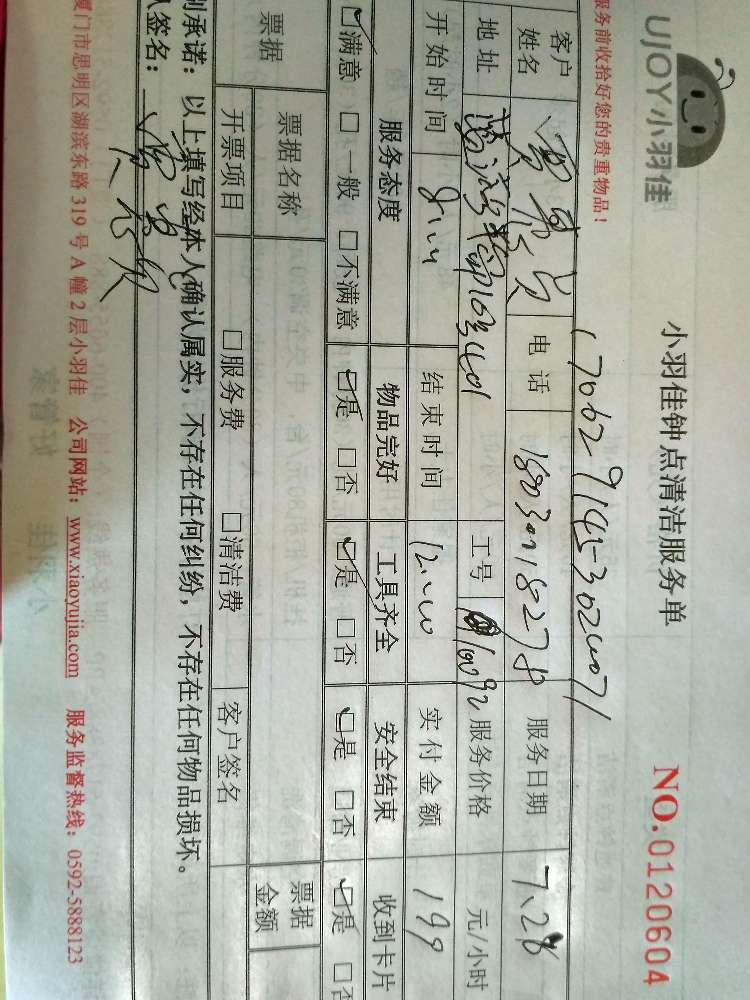 UJOY小羽佳
小羽佳钟点清洁服务单
NO.0120604
服务前收拾好您的贵重物品!
客户姓名 电话 18030218278 服务日期 7.28
地址 工号 服务价格 元/小时
开始时间 结束时间 实付金额 199
服务态度 物品完好 工具齐全 安全结束 收到卡片
☑满意 □一般 □不满意 ☑是 □否 ☑是 □否 ☑是 □否 ☑是 □否
票据 票据名称 票据金额
开票项目 □服务费 □清洁费 客户签名
承诺:以上填写经本人确认属实,不存在任何纠纷,不存在任何物品损坏。
人签名:
厦门市思明区湖滨东路319号A幢2层小羽佳 公司网站:www.xiaoyujia.com 服务监督热线:0592-5888123